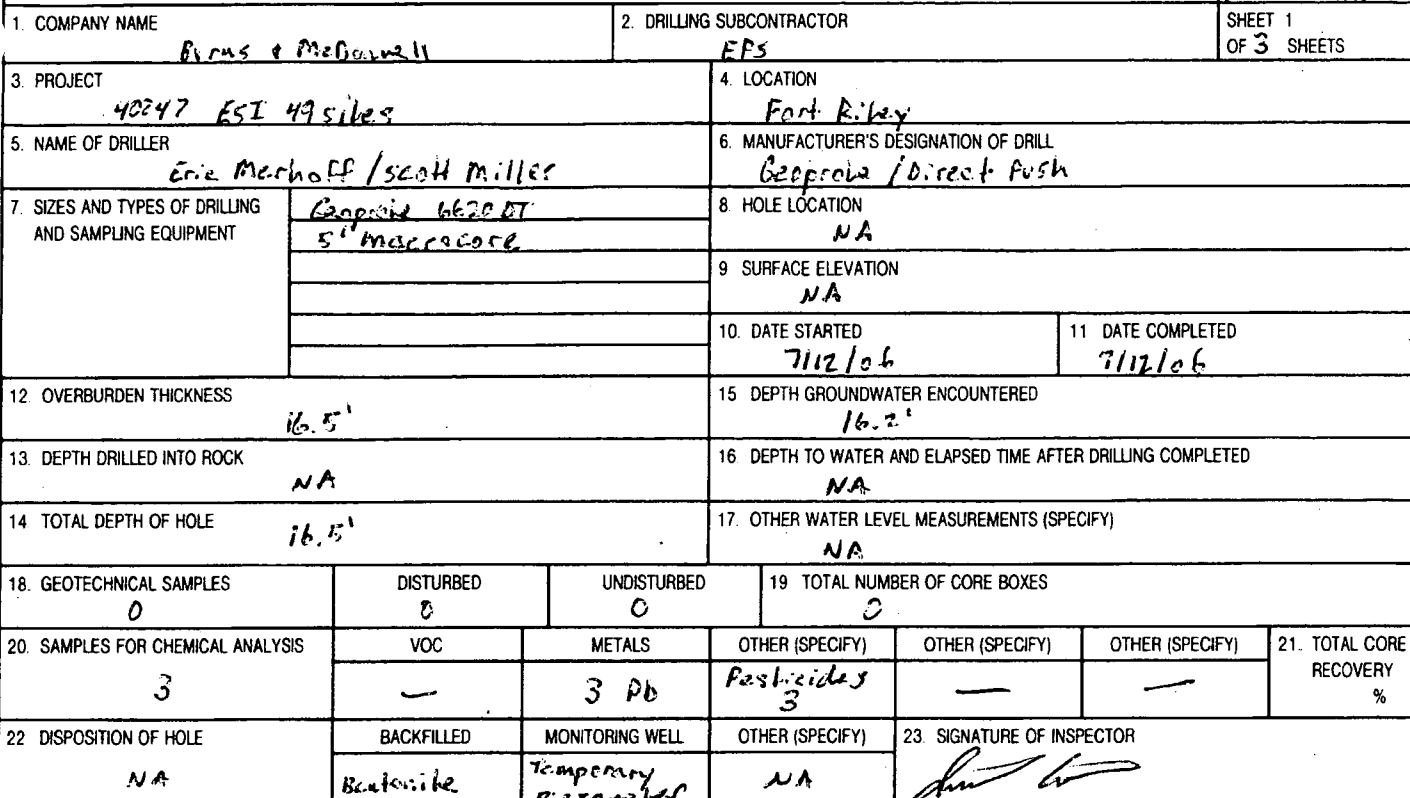 1. COMPANY NAME
Burns & McDonnell
2. DRILLING SUBCONTRACTOR
EPS
SHEET 1
OF 3 SHEETS
3. PROJECT
40247 ESI 49 sites
4. LOCATION
Fort Riley
5. NAME OF DRILLER
Eric Merhoff / Scott Miller
6. MANUFACTURER'S DESIGNATION OF DRILL
Geoprobe / Direct Push
7. SIZES AND TYPES OF DRILLING
AND SAMPLING EQUIPMENT
Geoprobe 6620 DT
5' Macrocore
8. HOLE LOCATION
NA
9 SURFACE ELEVATION
NA
10. DATE STARTED
7/12/06
11 DATE COMPLETED
7/12/06
12. OVERBURDEN THICKNESS
16.5'
15 DEPTH GROUNDWATER ENCOUNTERED
16.2'
13. DEPTH DRILLED INTO ROCK
NA
16 DEPTH TO WATER AND ELAPSED TIME AFTER DRILLING COMPLETED
NA
14. TOTAL DEPTH OF HOLE
16.5'
17. OTHER WATER LEVEL MEASUREMENTS (SPECIFY)
NA
18. GEOTECHNICAL SAMPLES
0
DISTURBED
0
UNDISTURBED
0
19 TOTAL NUMBER OF CORE BOXES
0
20. SAMPLES FOR CHEMICAL ANALYSIS
3
VOC
—
METALS
3 Pb
OTHER (SPECIFY)
Pesticides
3
OTHER (SPECIFY)
—
OTHER (SPECIFY)
—
21. TOTAL CORE
RECOVERY
%
22 DISPOSITION OF HOLE
NA
BACKFILLED
Bentonite
MONITORING WELL
Temporary
Piezometer
OTHER (SPECIFY)
NA
23. SIGNATURE OF INSPECTOR